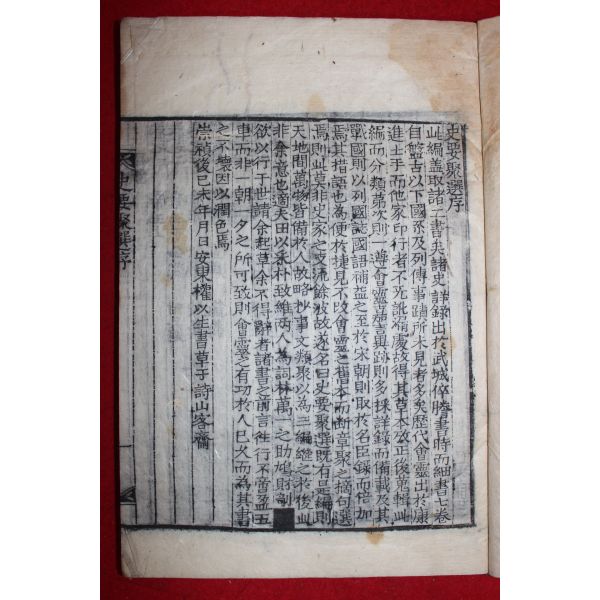 史要聚選序
此編盖取諸二書矣諸史詳錄出於武城倅膽書時而細書七卷
自盤古以下國系及列傳事蹟所未見者多矣歷代會靈出於康
進士手而他家印行者不死訛漏慶故得其草本攷正後萬輯此
編而分類第次則一遵會靈嘉言異跡則多採詳錄而備載及其
戰國則以列國誌國語補益之至於宋朝則取於名臣錄而倍加
焉則其措語也為便於捷見不改會靈之舊本而斷章聚之摘句選
焉則此莫非史家之文流餘波故遂名曰史要聚選既有是編則
天地間萬物皆備於人故略抄事文類聚以為三編繼之於後此
非余意也適大田以采朴致維兩人為詞林萬一之助鳩財剞
欲以行于世請余起草余不得辭者諸書之前言徃行不啻盈五
車而非一朝一夕之所可致則會靈之有功於人已久而為其書
之不壞因以潤色焉
崇禎後己未年月日安東權以生書草于詩山客齋
史要聚選序